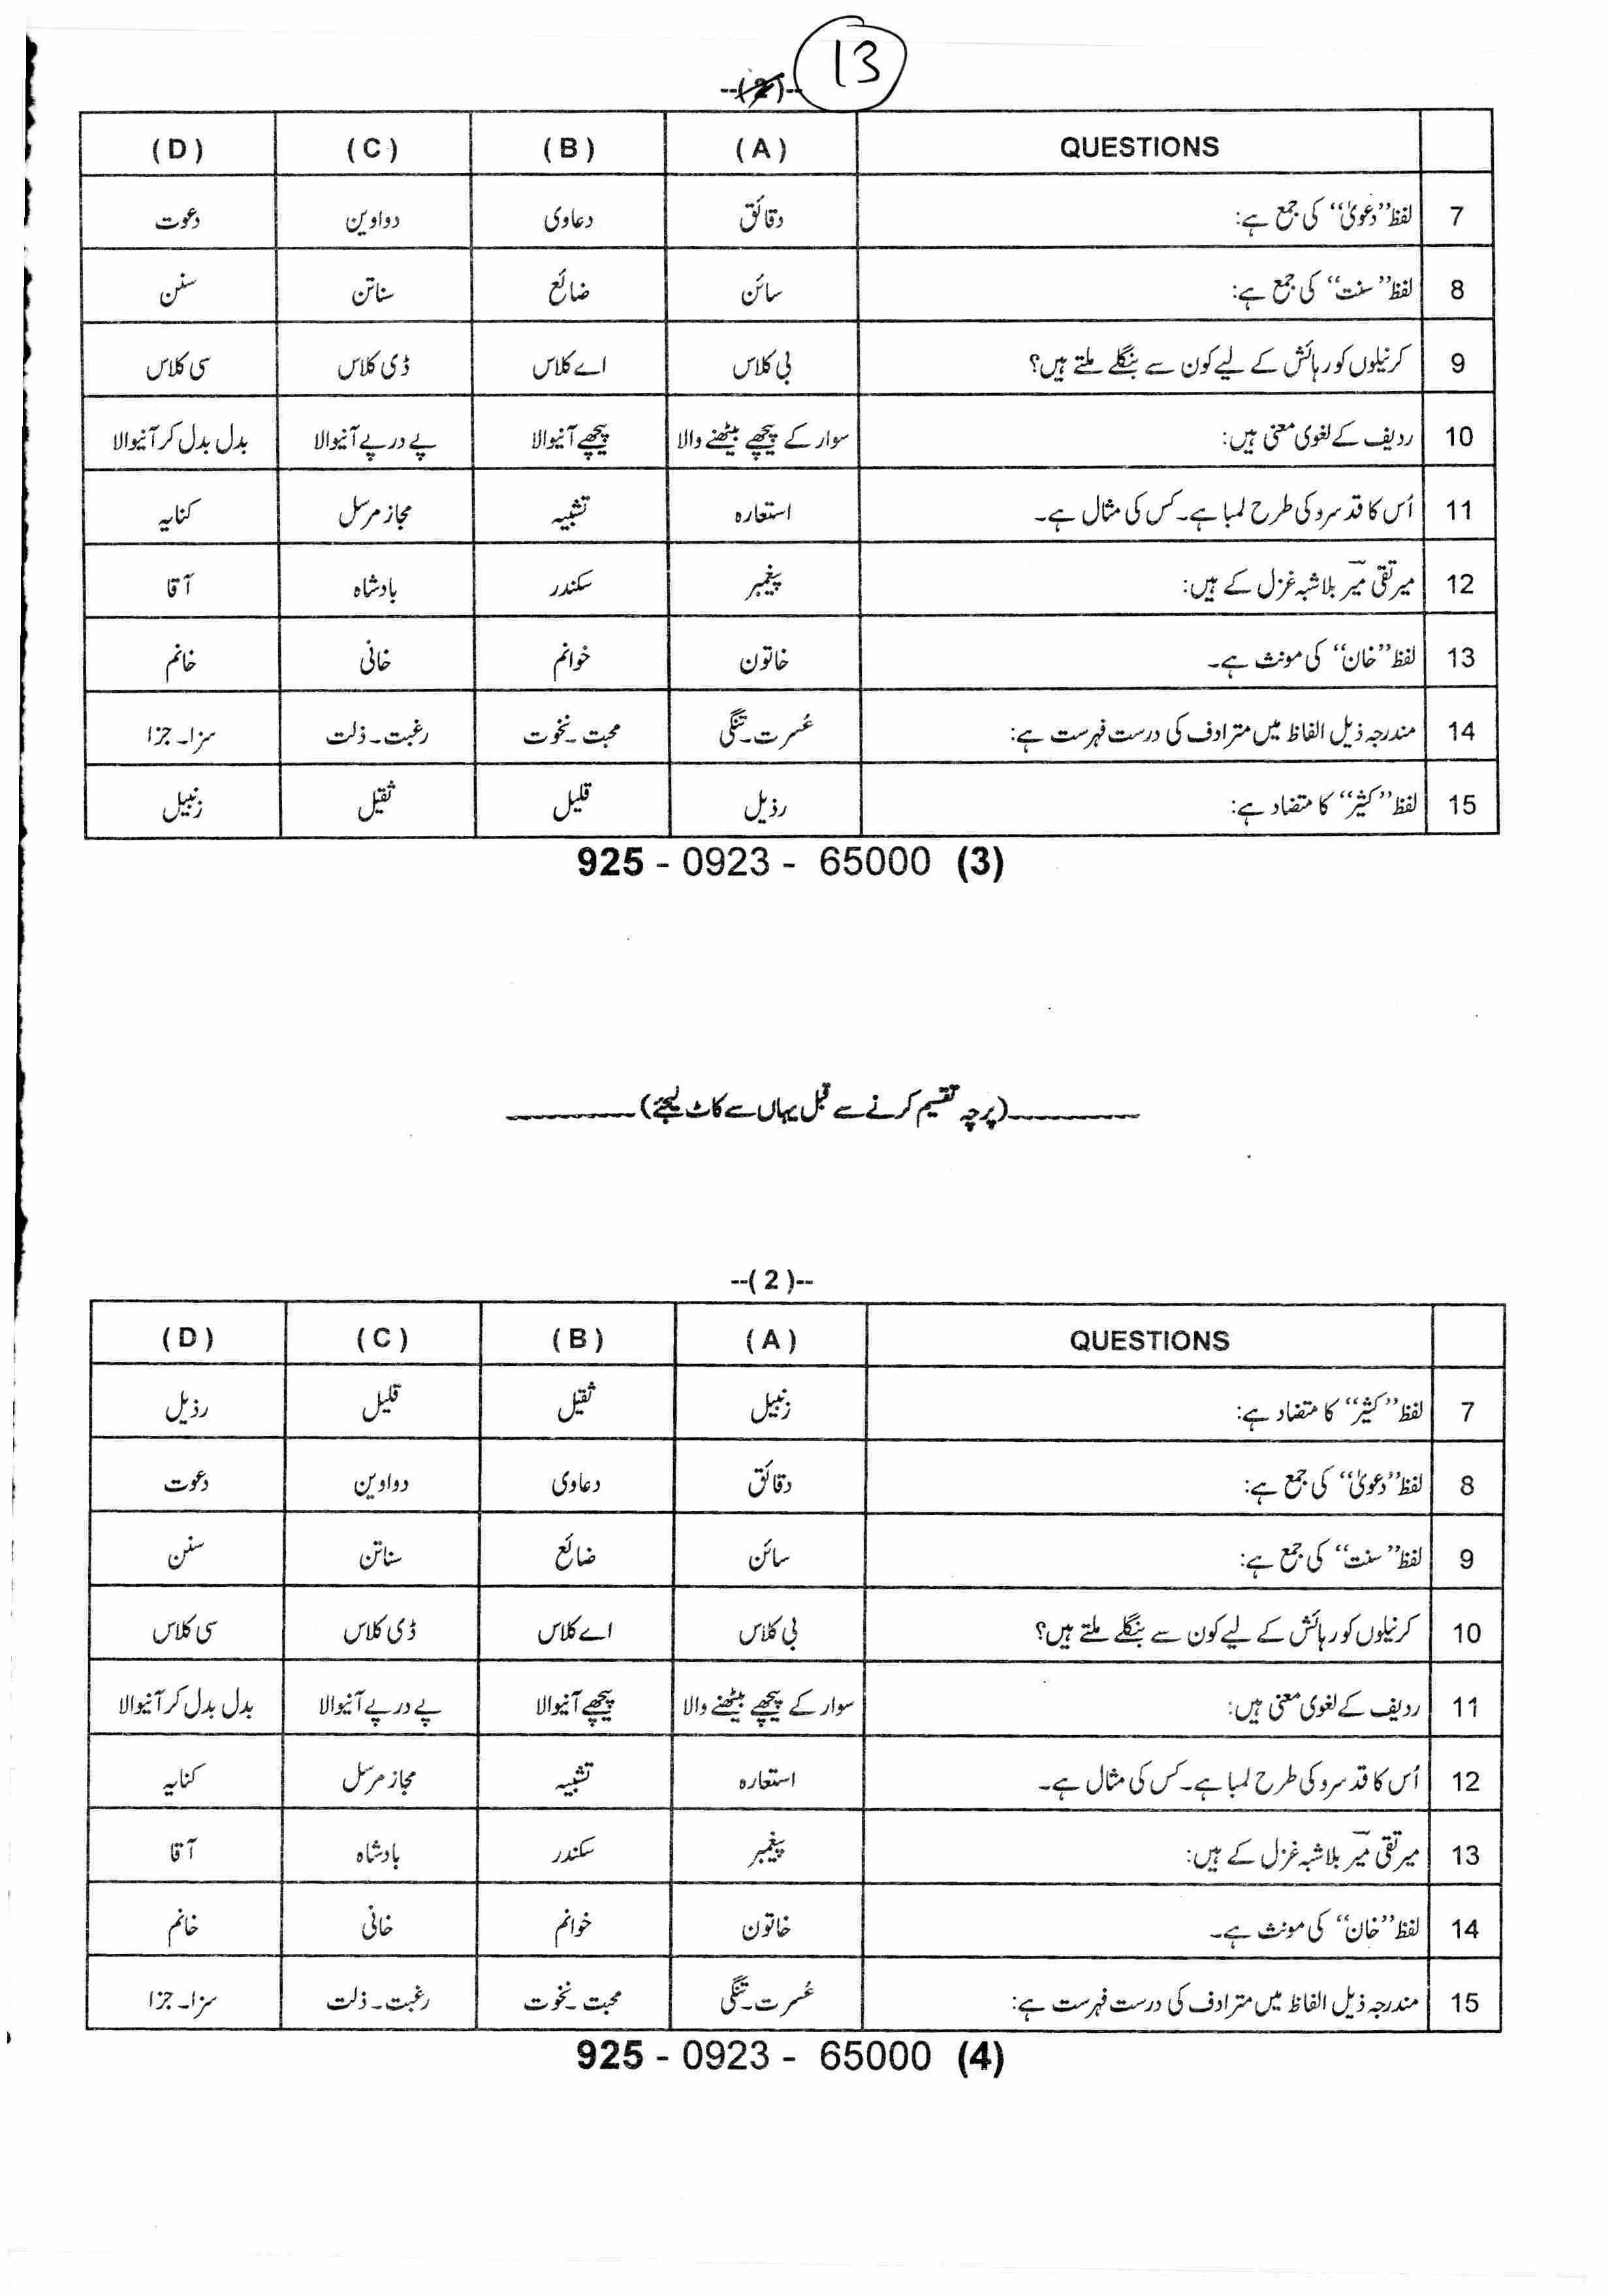 13
--(2)--
QUESTIONS (A) (B) (C) (D)
7 لفظ ’’دعویٰ‘‘ کی جمع ہے: دقائق دعاوی دواوین دعوت
8 لفظ ’’سنت‘‘ کی جمع ہے: سائن ضائع سناتن سنن
9 کرنیلوں کو رہائش کے لیے کون سے بنگلے ملتے ہیں؟ بی کلاس اے کلاس ڈی کلاس سی کلاس
10 ردیف کے لغوی معنی ہیں: سوار کے پیچھے بیٹھنے والا پیچھے آنیوالا پے در پے آنیوالا بدل بدل کر آنیوالا
11 اُس کا قد سرو کی طرح لمبا ہے۔ کس کی مثال ہے۔ استعارہ تشبیہ مجاز مرسل کنایہ
12 میر تقی میر بلاشبہ غزل کے ہیں: پیغمبر سکندر بادشاہ آقا
13 لفظ ’’خان‘‘ کی مونث ہے۔ خاتون خوانم خانی خانم
14 مندرجہ ذیل الفاظ میں مترادف کی درست فہرست ہے: عُسرت۔تنگی محبت۔نخوت رغبت۔ذلت سزا۔جزا
15 لفظ ’’کثیر‘‘ کا متضاد ہے: رذیل قلیل ثقیل زنبیل
925 - 0923 - 65000 (3)
(پرچہ تقسیم کرنے سے قبل یہاں سے کاٹ لیجئے)
--( 2 )--
QUESTIONS (A) (B) (C) (D)
7 لفظ ’’کثیر‘‘ کا متضاد ہے: زنبیل ثقیل قلیل رذیل
8 لفظ ’’دعویٰ‘‘ کی جمع ہے: دقائق دعاوی دواوین دعوت
9 لفظ ’’سنت‘‘ کی جمع ہے: سائن ضائع سناتن سنن
10 کرنیلوں کو رہائش کے لیے کون سے بنگلے ملتے ہیں؟ بی کلاس اے کلاس ڈی کلاس سی کلاس
11 ردیف کے لغوی معنی ہیں: سوار کے پیچھے بیٹھنے والا پیچھے آنیوالا پے در پے آنیوالا بدل بدل کر آنیوالا
12 اُس کا قد سرو کی طرح لمبا ہے۔ کس کی مثال ہے۔ استعارہ تشبیہ مجاز مرسل کنایہ
13 میر تقی میر بلاشبہ غزل کے ہیں: پیغمبر سکندر بادشاہ آقا
14 لفظ ’’خان‘‘ کی مونث ہے۔ خاتون خوانم خانی خانم
15 مندرجہ ذیل الفاظ میں مترادف کی درست فہرست ہے: عُسرت۔تنگی محبت۔نخوت رغبت۔ذلت سزا۔جزا
925 - 0923 - 65000 (4)